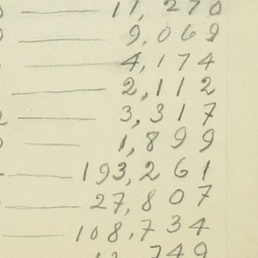 — 11,270
— 9,069
— 4,174
— 2,112
— 3,317
— 1,899
— 193,261
— 27,807
— 108,734
749